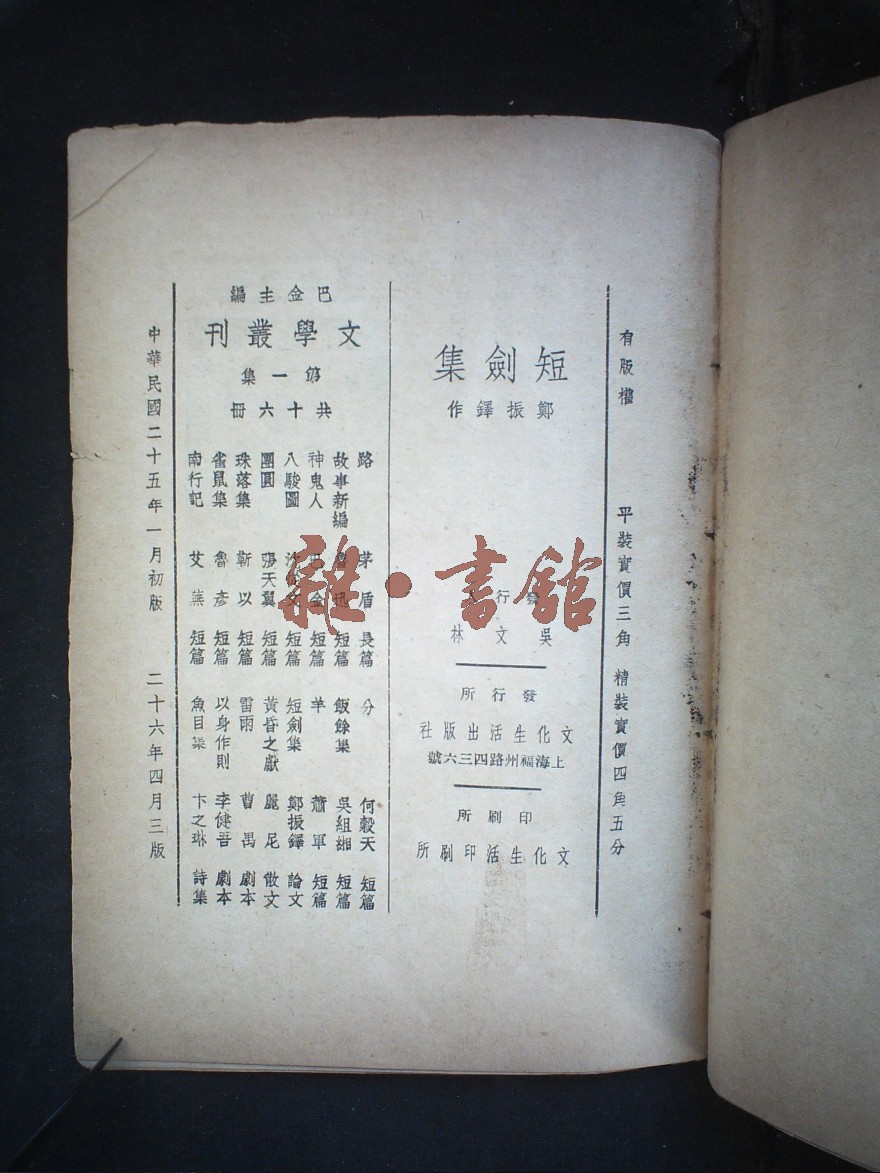 有版權 平裝實價三角 精裝實價四角五分
短劍集
鄭振鐸作
發行人
吳文林
發行所
文化生活出版社
上海福州路四三六號
印刷所
文化生活印刷所
巴金主編
文學叢刊
第一集
共十六冊
路 茅盾 長篇
故事新編 魯迅 短篇
神鬼人 巴金 短篇
八駿圖 沈從文 短篇
團圓 張天翼 短篇
珠落集 靳以 短篇
雀鼠集 魯彥 短篇
南行記 艾蕪 短篇
分 何穀天 短篇
飯餘集 吳組緗 短篇
羊 蕭軍 短篇
短劍集 鄭振鐸 論文
黃昏之獻 麗尼 散文
雷雨 曹禺 劇本
以身作則 李健吾 劇本
魚目集 卞之琳 詩集
中華民國二十五年一月初版 二十六年四月三版
雜·書館